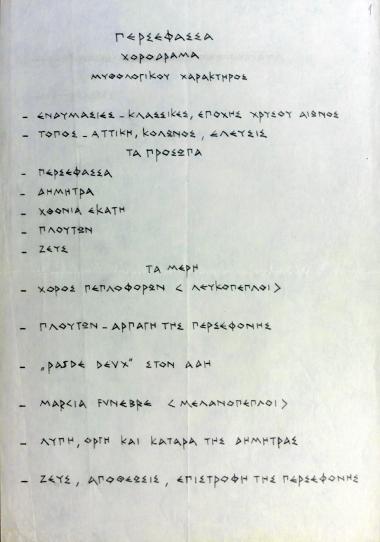 1
ΠΕΡΣΕΦΑΣΣΑ
ΧΟΡΟΔΡΑΜΑ
ΜΥΘΟΛΟΓΙΚΟΥ ΧΑΡΑΚΤΗΡΟΣ
- ΕΝΔΥΜΑΣΙΕΣ - ΚΛΑΣΣΙΚΕΣ, ΕΠΟΧΗΣ ΧΡΥΣΟΥ ΑΙΩΝΟΣ
- ΤΟΠΟΣ - ΑΤΤΙΚΗ, ΚΟΛΩΝΟΣ, ΕΛΕΥΣΙΣ
ΤΑ ΠΡΟΣΩΠΑ
- ΠΕΡΣΕΦΑΣΣΑ
- ΔΗΜΗΤΡΑ
- ΧΘΟΝΙΑ ΕΚΑΤΗ
- ΠΛΟΥΤΩΝ
- ΖΕΥΣ
ΤΑ ΜΕΡΗ
- ΧΟΡΟΣ ΠΕΠΛΟΦΟΡΩΝ < ΛΕΥΚΟΠΕΠΛΟΙ >
- ΠΛΟΥΤΩΝ - ΑΡΠΑΓΗ ΤΗΣ ΠΕΡΣΕΦΟΝΗΣ
- „PASDE DEUX" ΣΤΟΝ ΑΔΗ
- MARCIA FUNEBRE < ΜΕΛΑΝΟΠΕΠΛΟΙ >
- ΛΥΠΗ, ΟΡΓΗ ΚΑΙ ΚΑΤΑΡΑ ΤΗΣ ΔΗΜΗΤΡΑΣ
- ΖΕΥΣ, ΑΠΟΘΕΩΣΙΣ, ΕΠΙΣΤΡΟΦΗ ΤΗΣ ΠΕΡΣΕΦΟΝΗΣ